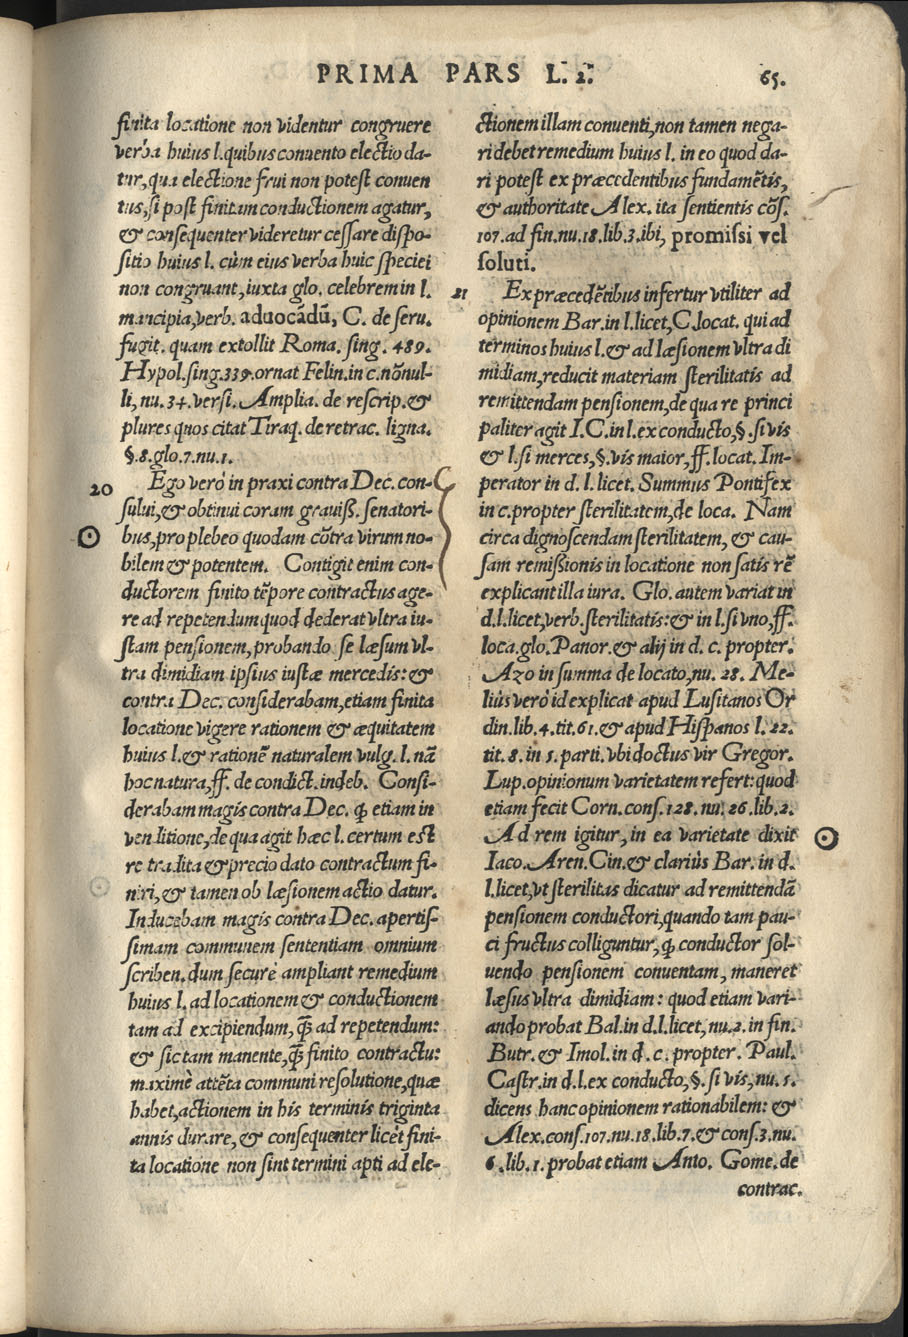 PRIMA PARS L. 2.
65.
finita locatione non videntur congruere
verba huius l. quibus conuento electio da-
tur, qua electione frui non potest conuen
tus, si post finitam conductionem agatur,
& consequenter videretur cessare dispo-
sitio huius l. cùm eius verba huic speciei
non congruant, iuxta glo. celebrem in l.
mancipia, verb. aduocādū, C. de seru.
fugit. quam extollit Roma. sing. 489.
Hypol. sing. 339. ornat Felin. in c. nōnul-
li, nu. 34. versi. Amplia. de rescrip. &
plures quos citat Tiraq. de retrac. ligna.
§. 8. glo. 7. nu. 1.
20 Ego verò in praxi contra Dec. con-
sului, & obtinui coram grauiss. senatori-
bus, pro plebeo quodam cōtra virum no-
bilem & potentem. Contigit enim con-
ductorem finito tēpore contractus age-
re ad repetendum quod dederat vltra iu-
stam pensionem, probando se læsum vl-
tra dimidiam ipsius iustæ mercedis: &
contra Dec. considerabam, etiam finita
locatione vigere rationem & æquitatem
huius l. & rationē naturalem vulg. l. nā
hoc natura, ff. de condict. indeb. Consi-
derabam magis contra Dec. ꝙ etiam in
venditione, de qua agit hæc l. certum est
re tradita & precio dato contractum fi-
niri, & tamen ob læsionem actio datur.
Inducebam magis contra Dec. apertis-
simam communem sententiam omnium
scriben. dum securè ampliant remedium
huius l. ad locationem & conductionem
tam ad excipiendum, ꝗ̄ ad repetendum:
& sic tam manente, ꝗ̄ finito contractu:
maximè attēta communi resolutione, quæ
habet, actionem in his terminis triginta
annis durare, & consequenter licèt fini-
ta locatione non sint termini apti ad ele-
ctionem illam conuenti, non tamen nega-
ri debet remedium huius l. in eo quod da-
ri potest ex præcedentibus fundamētis,
& authoritate Alex. ita sentientis cōs.
107. ad fin. nu. 18. lib. 3. ibi, promissi vel
soluti.
21 Ex præcedētibus infertur vtiliter ad
opinionem Bar. in l. licet, C. locat. qui ad
terminos huius l. & ad læsionem vltra di
midiam, reducit materiam sterilitatis ad
remittendam pensionem, de qua re princi
paliter agit I. C. in l. ex conducto, §. si vis
& l. si merces, §. vis maior, ff. locat. Im-
perator in d. l. licet. Summus Pontifex
in c. propter sterilitatem, de loca. Nam
circa dignoscendam sterilitatem, & cau-
sam remissionis in locatione non satis rē
explicant illa iura. Glo. autem variat in
d. l. licet, verb. sterilitatis: & in l. si vno, ff.
loca. glo. Panor. & alij in d. c. propter.
Azo in summa de locato, nu. 28. Me-
liùs verò id explicat apud Lusitanos Or
din. lib. 4. tit. 61. & apud Hispanos l. 22.
tit. 8. in 5. parti. vbi doctus vir Gregor.
Lup. opinionum varietatem refert: quod
etiam fecit Corn. cons. 128. nu. 26. lib. 2.
Ad rem igitur, in ea varietate dixit
Iaco. Aren. Cin. & clariùs Bar. in d.
l. licet, vt sterilitas dicatur ad remittendā
pensionem conductori, quando tam pau-
ci fructus colliguntur, ꝙ conductor sol-
uendo pensionem conuentam, maneret
læsus vltra dimidiam: quod etiam vari-
ando probat Bal. in d. l. licet, nu. 2. in fin.
Butr. & Imol. in d. c. propter. Paul.
Castr. in d. l. ex conducto, §. si vis, nu. 5.
dicens hanc opinionem rationabilem: &
Alex. cons. 107. nu. 18. lib. 7. & cons. 3. nu.
6. lib. 1. probat etiam Anto. Gome. de
contrac.